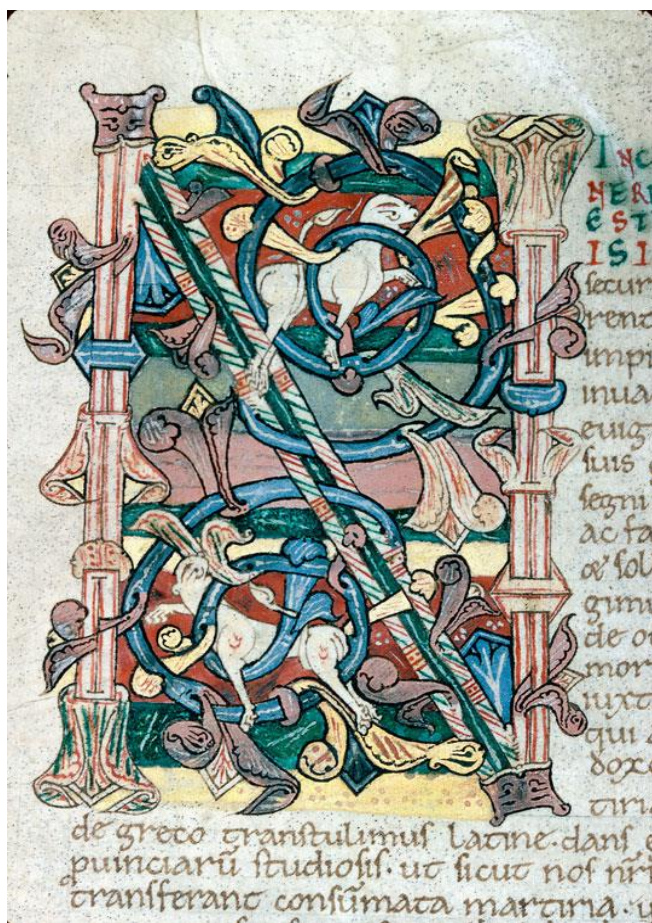 N
INC
NERI
EST
ISI
secur
rent
impi
inua
euig
suis
segni
ac fa
œ sol
gimi
de o
mor
iuxt
qui
doxo
tiria
de greco transtulimus latine. dans e
puinciarū studiosis. ut sicut nos nr̄i
transferant consūmata martiria. i